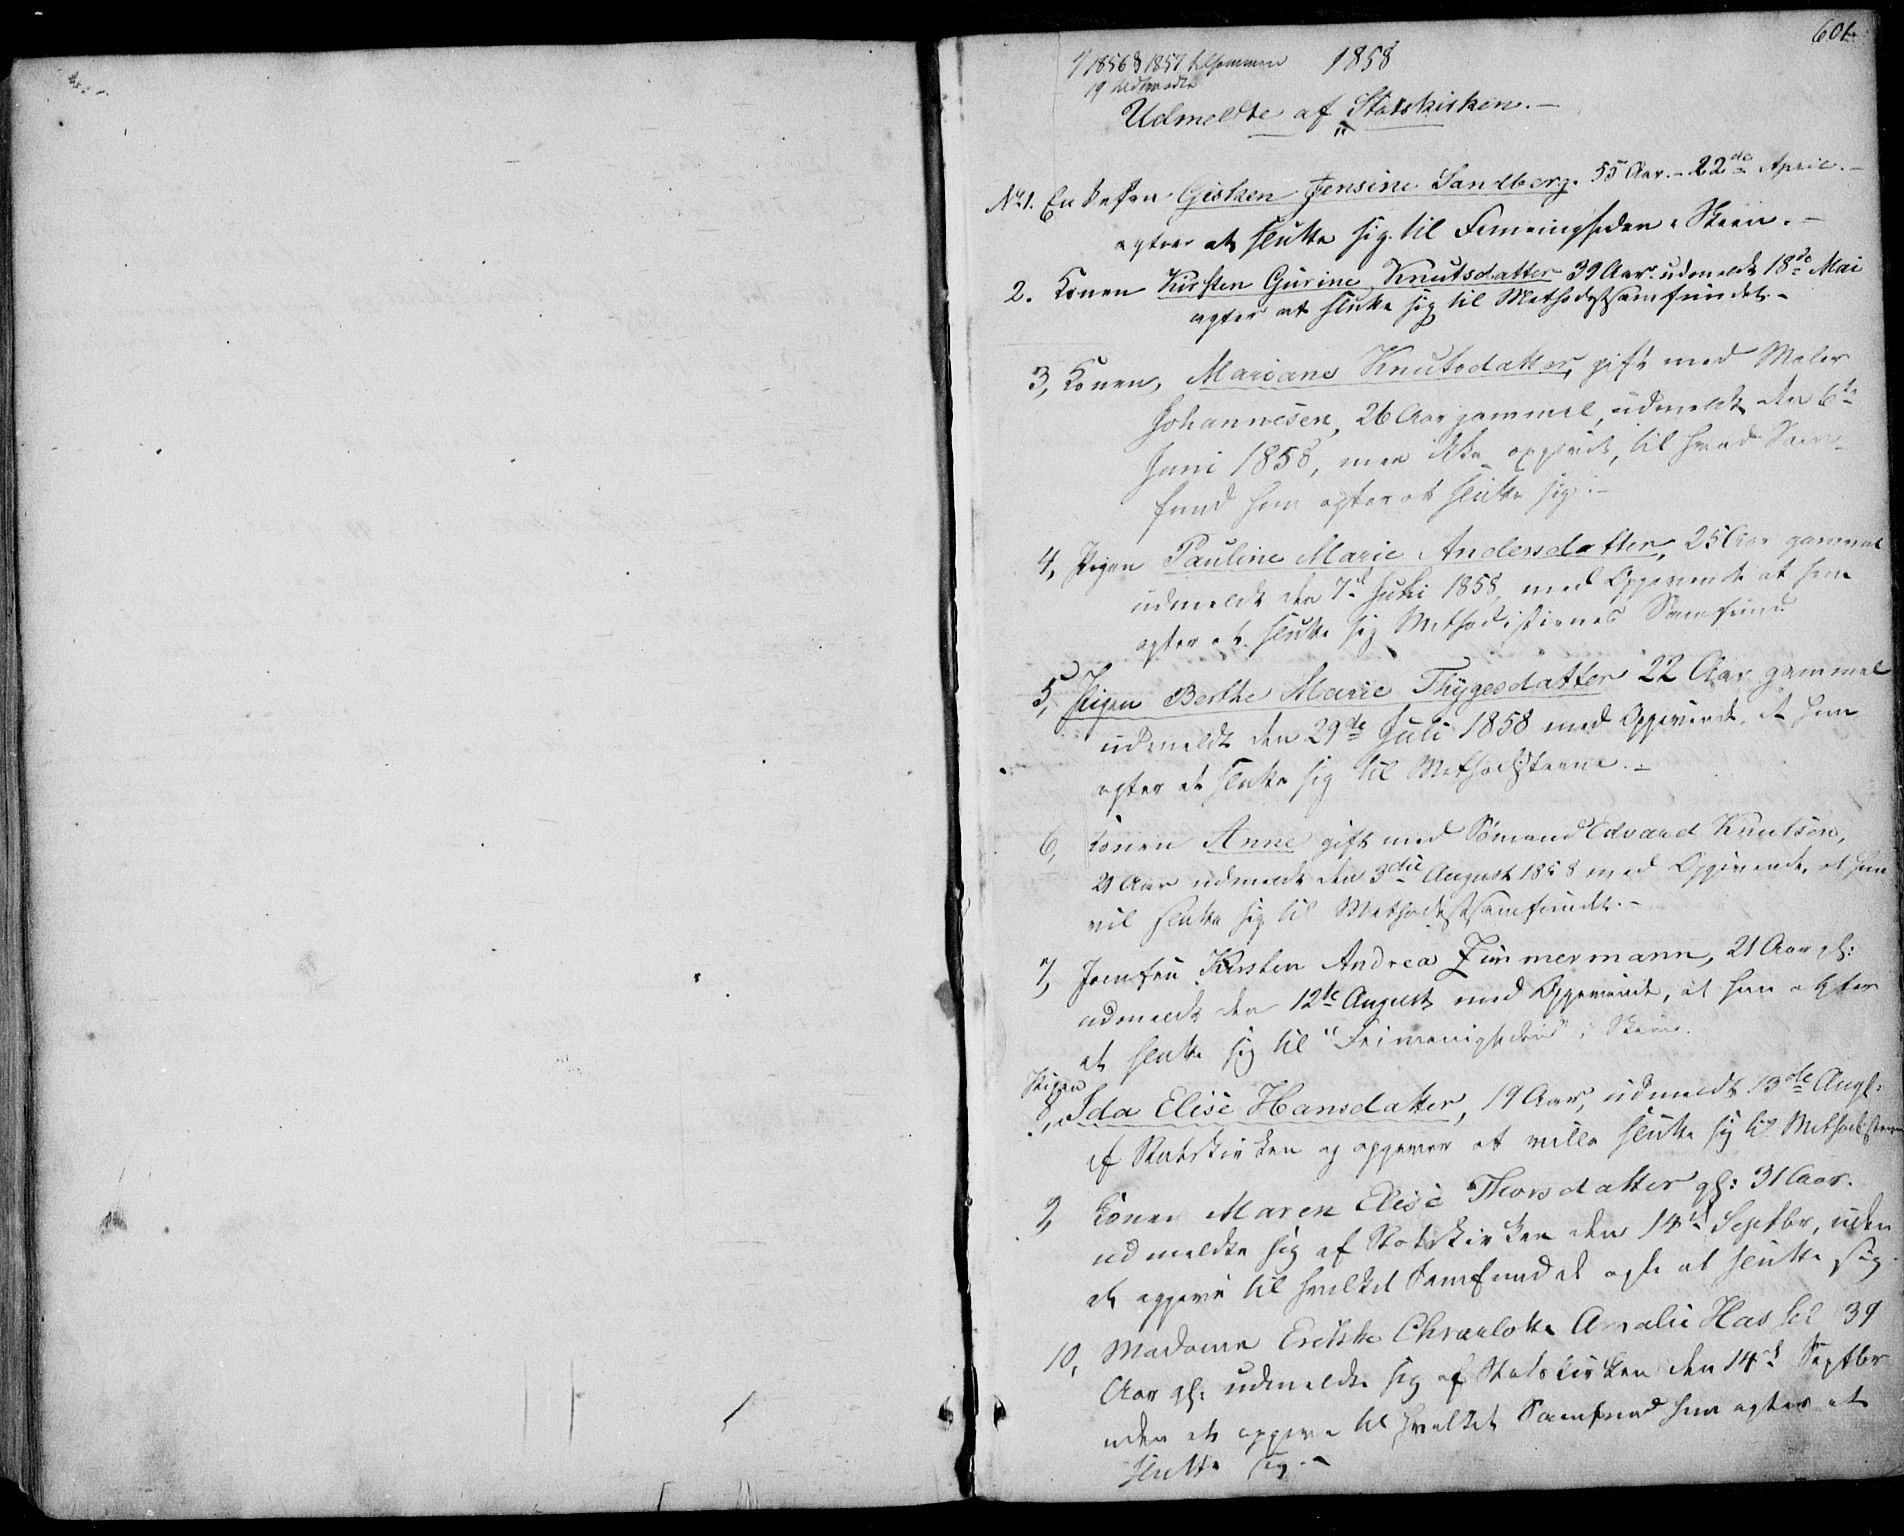 601.
I 1856 & 1857 tilsammen
19 Udmeldte
1858
Udmeldte af Statskirken. –
No 1. Enkefru Gisken Jensine Sandberg. 55 Aar. – 22de April. –
agter at slutte sig til Frimenigheden i Skien. –
2. Konen Kirsten Gurine Knutsdatter 39 Aar. udmeldt 18de Mai
agter at slutte sig til Methodistsamfundet. –
3, Konen, Mariane Knutsdatter, gift med Maler
Johannesen, 26 Aar gammel, udmeldt den 6te
Juni 1858, men ikke opgivet, til hvad Sam-
fund hun agter at slutte sig. –
4, Pigen Pauline Marie Andersdatter, 25 Aar gammel
udmeldt den 7de Juli 1858, med Opgivende at hun
agter at slutte sig Methodisternes Samfund
5, Pigen Berthe Marie Thygesdatter 22 Aar gammel
udmeldt den 29de Juli 1858 med Opgivende, at hun
agter at slutte sig til Methodisterne. –
6, Konen Anne gift med Sømand Edvard Knutsen,
21 Aar udmeldt den 3die August 1858 med Opgivende, at hun
vil slutte sig til Methodistsamfundet. –
7, Jomfru Kirsten Andrea Zimmermann, 21 Aar gl:
udmeldt den 12te August med Opgivende, at hun agter
at slutte sig til "Frimenigheden" i Skien.
Pigen
8, Ida Elise Hansdatter, 19 Aar, udmeldt 13de Augt:
af Statskirken og opgiver at ville slutte sig til Methodisterne
9, Konen Maren Elise Thorsdatter gl: 31 Aar.
udmeldte sig af Statskirken den 14d Septbr, uden
at opgive til hvilket Samfund at agte at slutte sig.
10, Madame Charlotte Amalie Hassel 39
Aar gl. udmeldte sig af Statskirken den 14d Septbr
uden at opgive til hvilket Samfund hun agter at
slutte sig. –